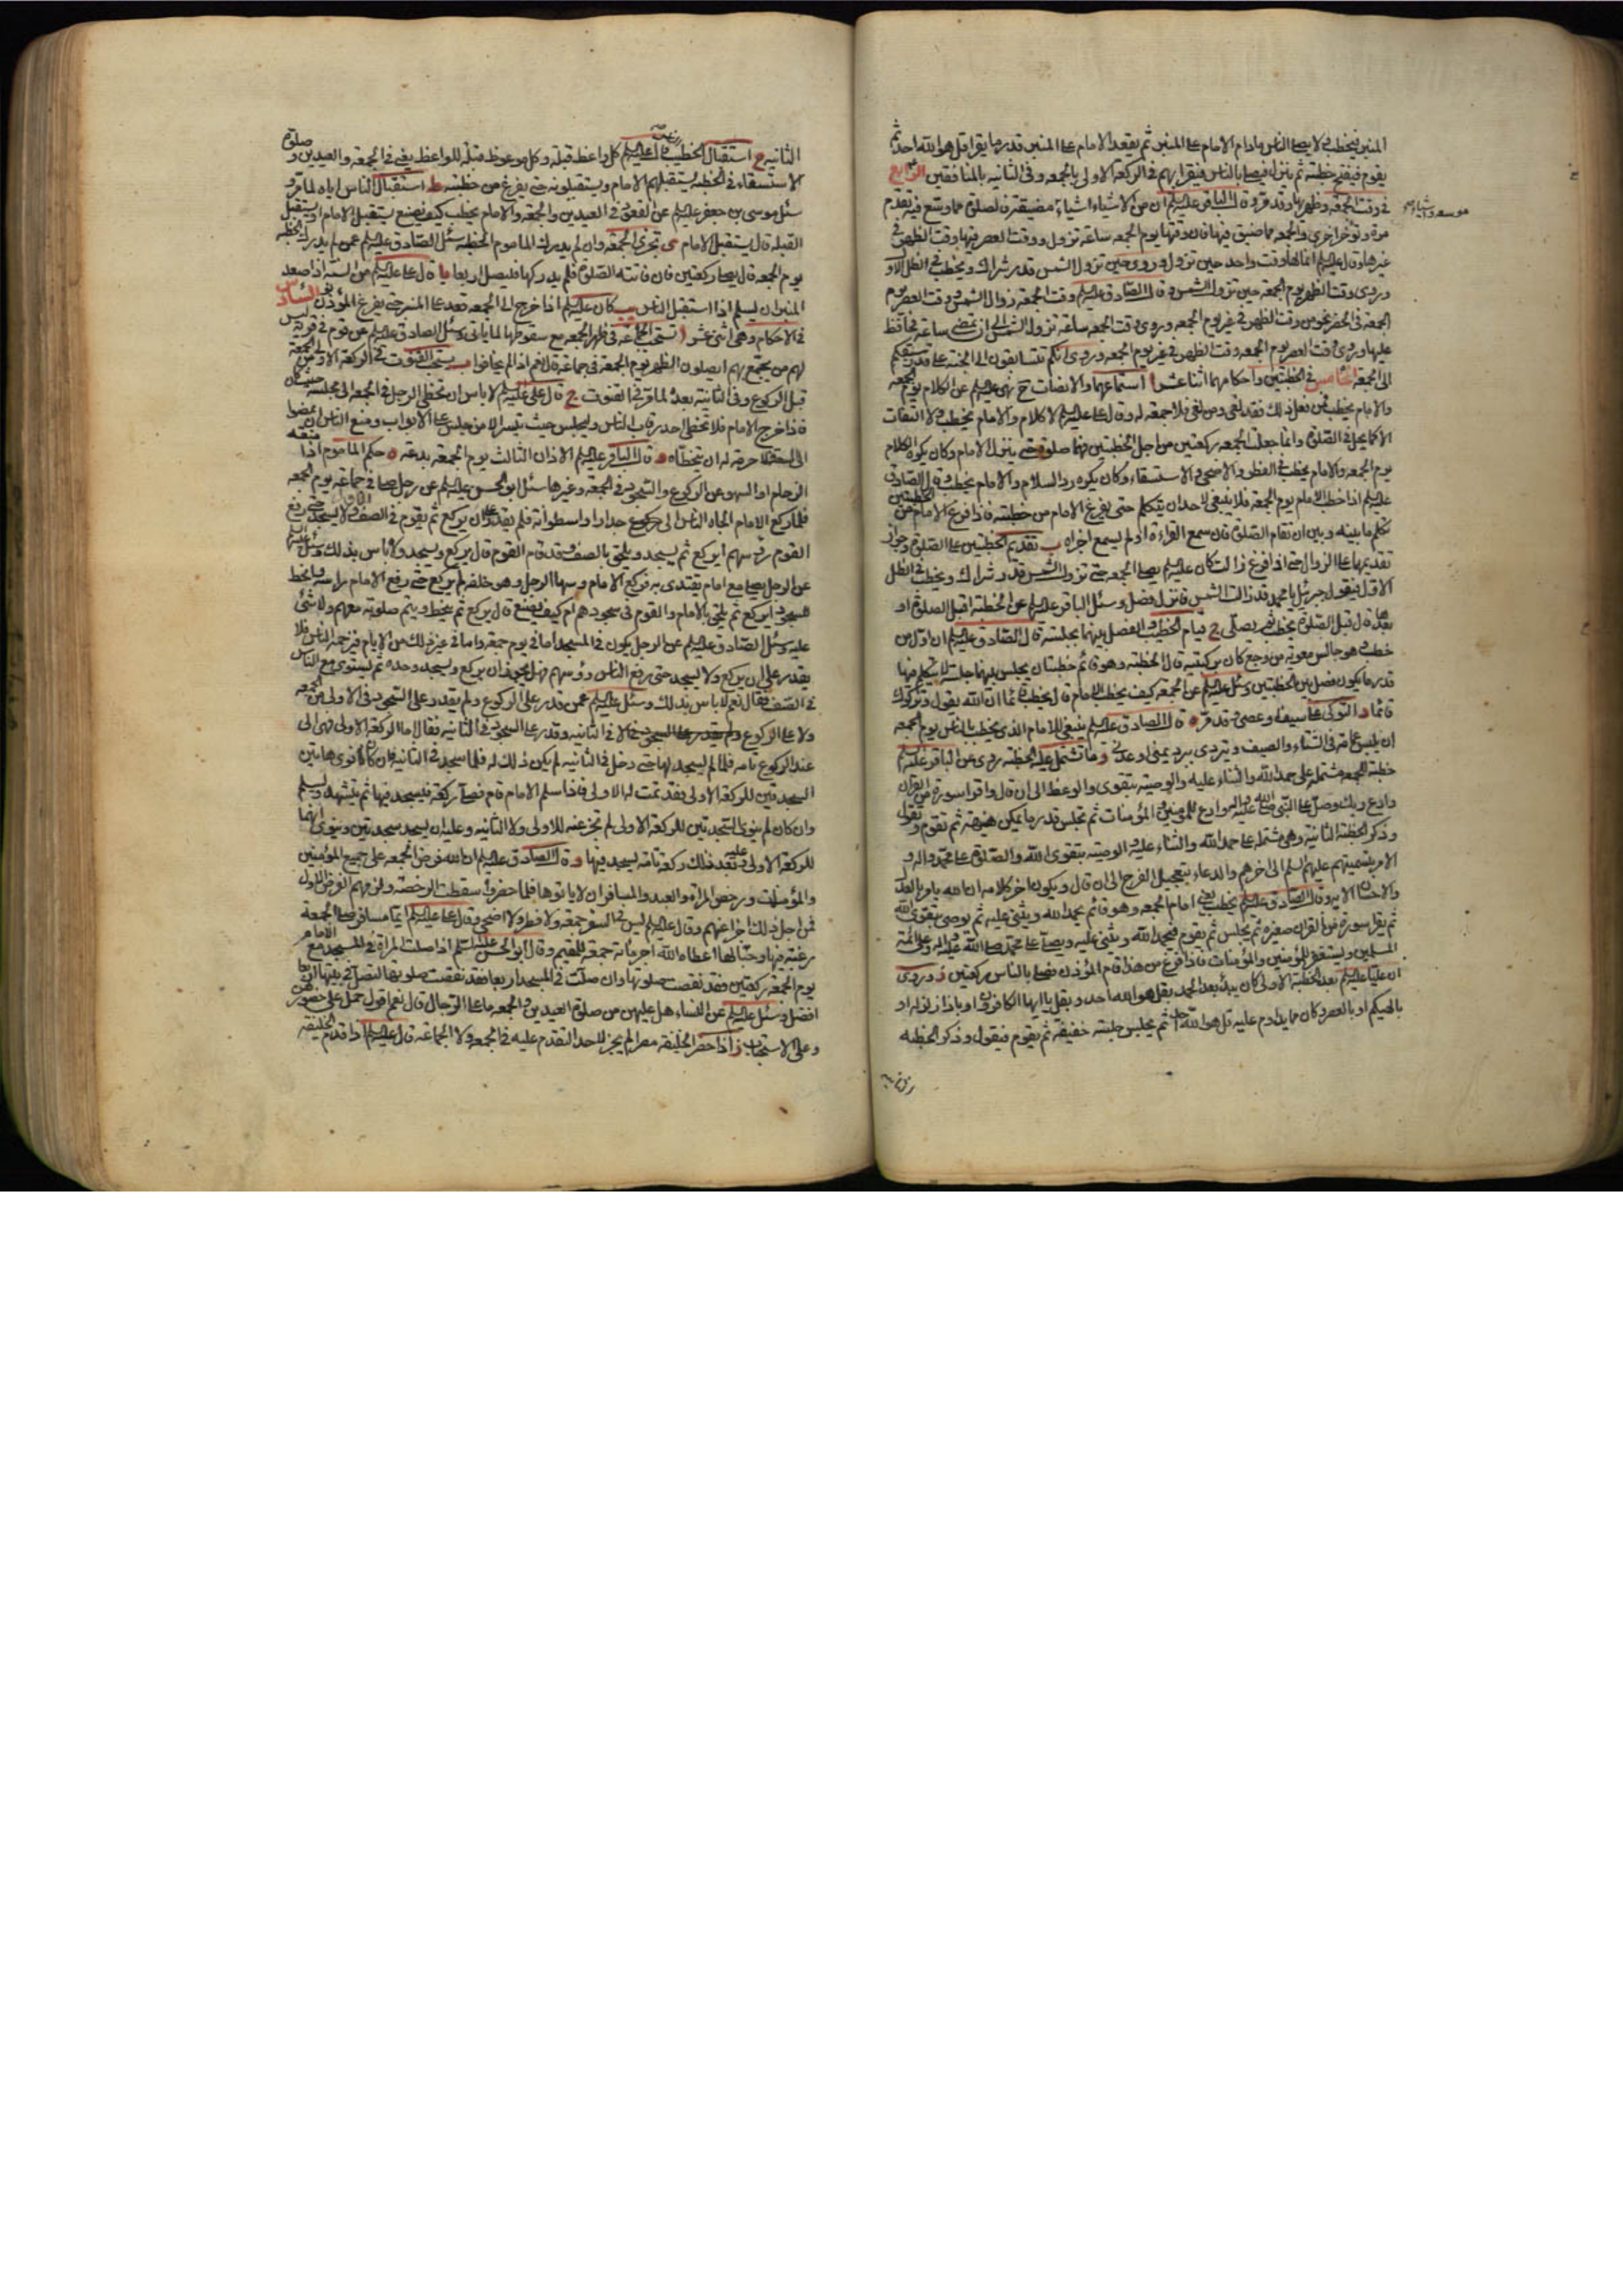 المنبر فيخطب لا يصلي الناس مادام الامام على المنبر ثم يقعد الامام على المنبر قدر ما يقرا قل هو الله احد ثم
يقوم فيفتح خطبته ثم ينزل فيصلي بالناس فيقرا بهم في الركعة الاولى بالجمعه وفي الثانيه بالمنافقين الرابع
في وقت الجمعة وظهريها وقد مر و قال الباقر عليه السلم ان من الاشياء اشياء مضيقة فالصلوة مما وسع فيه يقدم
مرة وتؤخر اخرى والجمعه مما ضيق فيها فان وقتها يوم الجمعه ساعة تزول ووقت العصر فيها وقت الظهر في
غيرها وقال عليه السلم انما لها وقت واحد حين تزول وروي حين تزول الشمس قدر شراك ويخطب في الظل الاول
وروي وقت الظهر يوم الجمعة حين تزول الشمس و قال الصادق عليه السلم وقت الجمعة زوال الشمس ووقت العصر يوم
الجمعة في الحضر نحو من وقت الظهر في غير يوم الجمعه وروي وقت الجمعه ساعة تزول الشمس الى ان تمضي ساعة تحافظ
عليها وروي وقت العصر يوم الجمعه وقت الظهر في غير يوم الجمعه وروي انكم تتسابقون الى الجنة على قدر سبقكم
الى الجمعة الخامس في الخطبتين واحكامهما اثنا عشر ا استماعهما والانصات نهى عليه السلم عن الكلام يوم الجمعه
والامام يخطب فمن فعل ذلك فقد لغى ومن لغى فلا جمعة له وقال علي عليه السلم لا كلام والامام يخطب ولا التفات
الا كما يحل في الصلوة وانما جعلت الجمعه ركعتين من اجل الخطبتين فهما صلوة حتى ينزل الامام وكان يكره الكلام
يوم الجمعه والامام يخطب في الفطر والاضحى والاستسقاء وكان يكره رد السلام والامام يخطب وقال الصادق
عليه السلم اذا خطب الامام يوم الجمعة فلا ينبغي لاحد ان يتكلم حتى يفرغ الامام من خطبته فاذا فرغ الامام من الخطبتين
تكلم ما بينه وبين ان تقام الصلوة فان سمع القراءة او لم يسمع اجزاه ب تقديم الخطبتين على الصلوة وجواز
تقديمهما على الزوال حتى اذا فرغ زالت كان عليه السلم يصلي الجمعه حتى تزول الشمس قدر شراك ويخطب في الظل
الاول فيقول جبرئيل يا محمد قد زالت الشمس فانزل فصل وسئل الباقر عليه السلم عن الخطبة اقبل الصلوة او
بعدها قال قبل الصلوة يخطب ثم يصلي ج قيام الخطيب والفصل بينهما بجلسة قال الصادق عليه السلم ان اول من
خطب وهو جالس معوية من وجع كان بركبتيه قال الخطبة وهو قائم خطبتان يجلس بينهما جلسة لا يتكلم فيها
قدر ما يكون فصل بين الخطبتين وسئل عليه السلم عن الجمعه كيف يخطب الامام قال يخطب قائما ان الله يقول وتركوك
قائما د التوكي على سيف او عصى وقد مر ه قال الصادق عليه السلم ينبغي للامام الذي يخطب بالناس يوم الجمعه
ان يلبس عمامة في الشتاء والصيف ويتردى ببرد يمني او عدني و ما تشتمل عليه الخطبة روي عن الباقر عليه السلم
خطبة للجمعه مشتملة على حمد الله والثناء عليه والوصية بتقوى والوعظ الى ان قال واقرا سورة من القران
وادع ربك وصل على النبي صلى الله عليه واله وادع للمومنين والمؤمنات ثم تجلس قدر ما يمكن هنيهة ثم تقوم وتقول
وذكر الخطبة الثانية وهي مشتملة على حمد الله والثناء عليه والوصية بتقوى الله والصلوة على محمد واله و
الامر بتسميتهم عليهم السلم الى اخرهم والدعاء بتعجيل الفرج الى ان قال ويكون اخر كلامه ان الله يامر بالعدل
والاحسان الايه وقال الصادق عليه السلم يخطب يعني امام الجمعه وهو قائم يحمد الله ويثني عليه ثم يوصي بتقوى الله
ثم يقرا سورة من القران صغيرة ثم يجلس ثم يقوم فيحمد الله ويثني عليه ويصلي على محمد صلى الله عليه واله وعلى ائمة
المسلمين ويستغفر للمؤمنين والمؤمنات فاذا فرغ من هذا قام المؤذن فصلى بالناس ركعتين ز وروي
ان عليا عليه السلم بعد الخطبة الاولى كان يبدأ بعد الحمد بقل هو الله احد و بقل يا ايها الكافرون او باذا زلزلت او
بالهيكم او بالعصر وكان مما يداوم عليه قل هو الله احد ثم يجلس جلسة خفيفة ثم يقوم فيقول وذكر الخطبه
الثانيه
الثانيه ح استقبال الخطيب قال عليه السلم كل واعظ قبلة وكل موعوظ قبلة للواعظ يعني في الجمعه والعيدين و صلوة
الاستسقاء في الخطبة يستقبلهم الامام ويستقبلونه حتى يفرغ من خطبته ط استقبال الناس اياه لما مر و
سئل موسى بن جعفر عليه السلم عن القعود في العيدين والجمعه والامام يخطب كيف يصنع يستقبل الامام او يستقبل
القبلة قال يستقبل الامام ى تجزي الجمعه وان لم يدرك الماموم الخطبه سئل الصادق عليه السلم عمن لم يدرك الخطبه
يوم الجمعه قال يصلي ركعتين فان فاتته الصلوة فلم يدركها فليصل اربعا يا قال علي عليه السلم من السنة اذا صعد
المنبر ان يسلم اذا استقبل الناس يب كان عليه السلم اذا خرج الى الجمعه قعد على المنبر حتى يفرغ المؤذن السادس
في الاحكام وهي اثني عشر ا تستحب الجماعة في ظهر الجمعه مع سقوطها لما ياتي وسئل الصادق عليه السلم عن قوم في قرية ليس
لهم من يجمع بهم ايصلون الظهر يوم الجمعة في جماعة قال نعم اذا لم يخافوا ب يستحب القنوت في الركعة الاولى من الجمعة
قبل الركوع وفي الثانية بعده لما مر في القنوت ج قال علي عليه السلم لا باس ان يتخطى الرجل في الجمعه الى مجلسه حيث كان
فاذا خرج الامام فلا يتخطى احد رقاب الناس وليجلس حيث تيسر الا من جلس على الابواب ومنع الناس ان يمضوا
الى السعة فلا حرمة له ان يتخطاه د قال الباقر عليه السلم الاذان الثالث يوم الجمعه بدعة ه حكم الماموم اذا منعه
الزحام او السهو عن الركوع والسجود في الجمعة وغيرها سئل ابو الحسن عليه السلم عن رجل صلى في جماعة يوم الجمعه
فلما ركع الامام الجاه الناس الى جدار او اسطوانة فلم يقدر على ان يركع ثم يقوم في الصف ولا يسجد حتى رفع
القوم رؤسهم ايركع ثم يسجد ويلحق بالصف وقد قام القوم قال يركع ويسجد ولا باس بذلك وسئل عليه السلم
عن الرجل يصلي مع امام يقتدي به فركع الامام وسها الرجل وهو خلفه لم يركع حتى رفع الامام راسه وانحط
للسجود ايركع ثم يلحق بالامام والقوم في سجودهم ام كيف يصنع قال يركع ثم ينحط ويتم صلوته معهم ولا شئ
عليه وسئل الصادق عليه السلم عن الرجل يكون في المسجد اما في يوم جمعة واما في غير ذلك من الايام فيزحمه الناس فلا
يقدر على ان يركع ولا يسجد حتى رفع الناس رؤسهم فهل يجوز له ان يركع ويسجد وحده ثم يستوي مع الناس
في الصف فقال نعم لا باس بذلك وسئل عليه السلم عمن قدر على الركوع ولم يقدر على السجود في الاولى من الجمعه
ولا على الركوع والسجود في الثانيه وقدر على السجود في الثانيه فقال اما الركعة الاولى فهي الى
عند الركوع تامه فلما لم يسجد لها حتى دخل في الثانيه لم يكن ذلك له فلما سجد في الثانيه فان كان نوى هاتين
السجدتين للركعة الاولى فقد تمت له الاولى فاذا سلم الامام قام فصلى ركعة فيسجد فيها ثم يتشهد ويسلم
وان كان لم ينو السجدتين للركعة الاولى لم تجز عنه للاولى ولا الثانيه وعليه ان يسجد سجدتين وينوي انهما
للركعة الاولى وعليه بعد ذلك ركعة تامة يسجد فيها و قال الصادق عليه السلم ان الله فرض الجمعه على جميع المؤمنين
والمؤمنات ورخص للمراة والعبد والمسافر ان لا ياتوها فلما حضروا سقطت الرخصة ولزمهم الفرض الاول
فمن اجل ذلك اجزا عنهم وقال عليه السلم ليس في السفر جمعة ولا فطر ولا اضحى وقال علي عليه السلم ايما مسافر صلى الجمعة
رغبة فيها وحبا لها اعطاه الله اجر مائة جمعة للمقيم وقال ابو الحسن عليه السلم اذا صلت المراة في المسجد مع الامام
يوم الجمعة ركعتين فقد نقصت صلوتها وان صلت في المسجد اربعا فقد نقصت صلوتها لتصل في بيتها اربعا
افضل وسئل عليه السلم عن النساء هل عليهن من صلوة العيدين والجمعه ما على الرجال قال نعم اقول حمل على حضورهن
وعلى الاستحباب ز اذا حضر الخليفة مصرا لم يجز لاحد التقدم عليه في الجمعه ولا الجماعة قال عليه السلم اذا قدم الخليفة